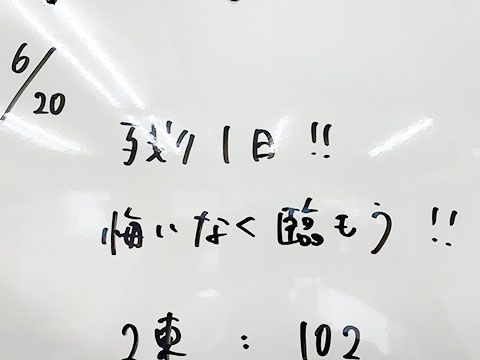 6/20
残り1日!!
悔いなく臨もう!!
2東:102